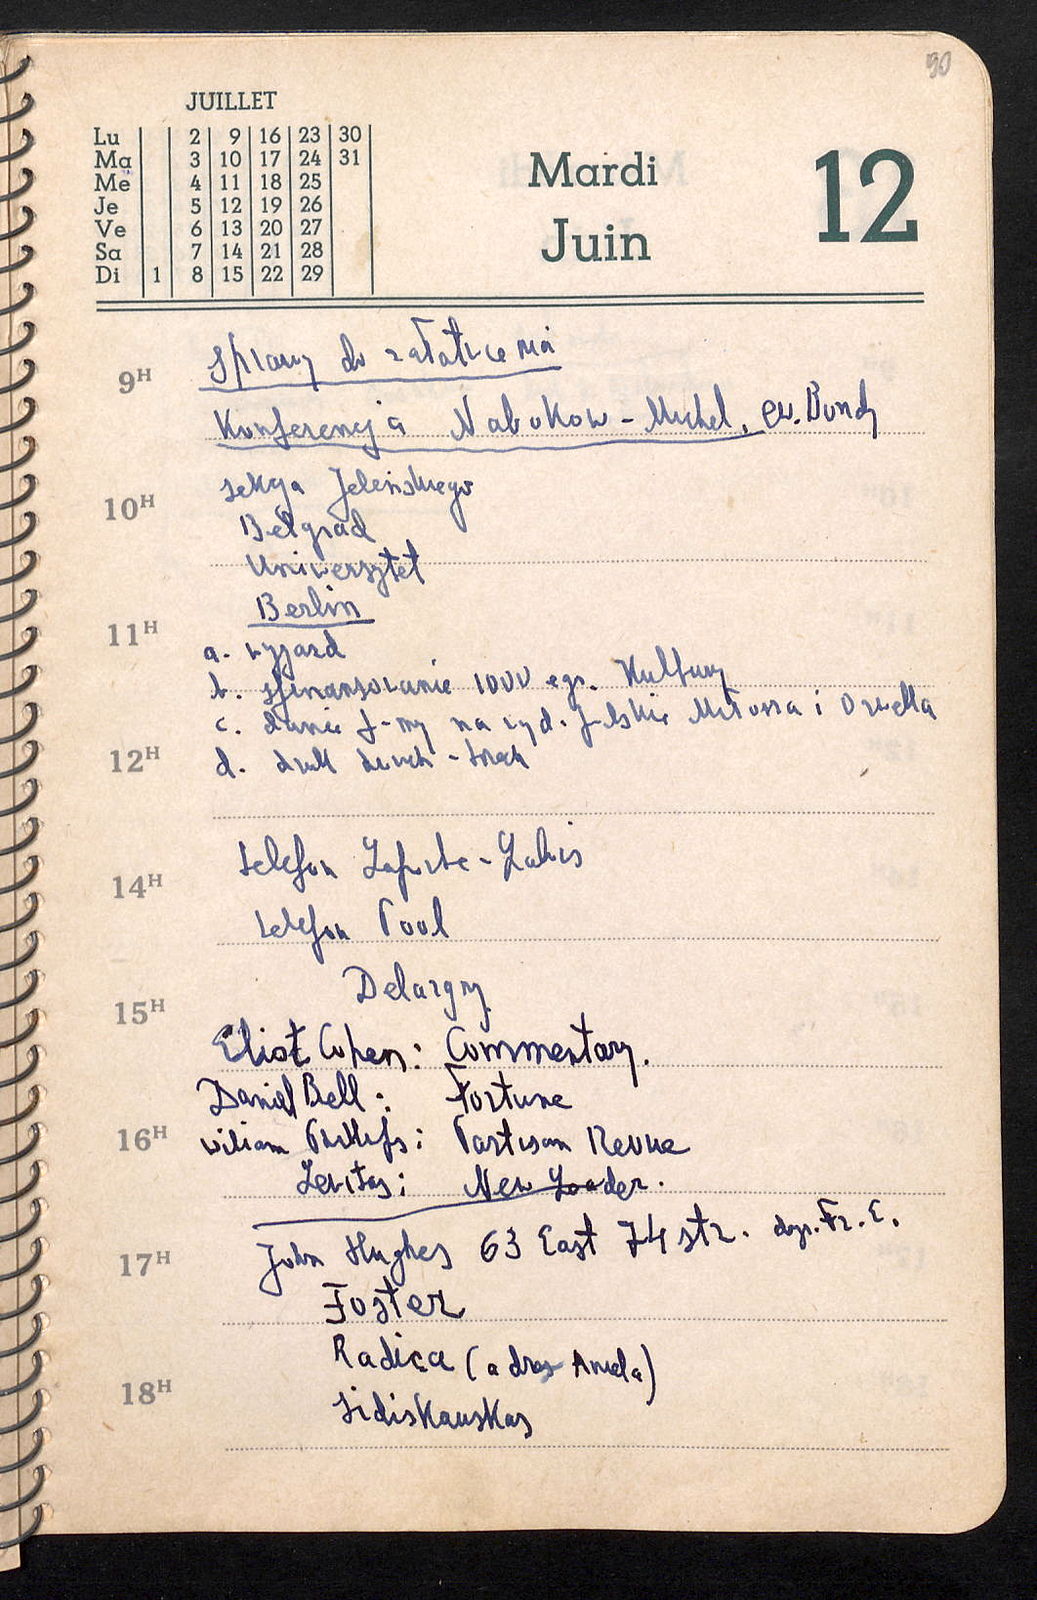 90
JUILLET
Lu 2 9 16 23 30
Ma 3 10 17 24 31
Me 4 11 18 25
Je 5 12 19 26
Ve 6 13 20 27
Sa 7 14 21 28
Di 1 8 15 22 29
Mardi
Juin
12
9H
Sprawy do załatwienia
Konferencja Nabokow - Michel, ew. Bondy
10H
sekcja Jeleńskiego
Belgrad
Uniwersytet
Berlin
11H
a. wyjazd
b. sfinansowanie 1000 egz. Kultury
c. danie na wyd. Miłosza i Orwella
12H
d. druk
telefon
14H
telefon
Delargy
15H
Eliot Cohen: Commentary.
Daniel Bell: Fortune
16H
Wiliam Phillips: Partisan Revue
Levitas: New Leader.
17H
John Hughes 63 East 74 str. Fr. E.
Foster
Radica (adres Aniela)
18H
Sidiskauskas